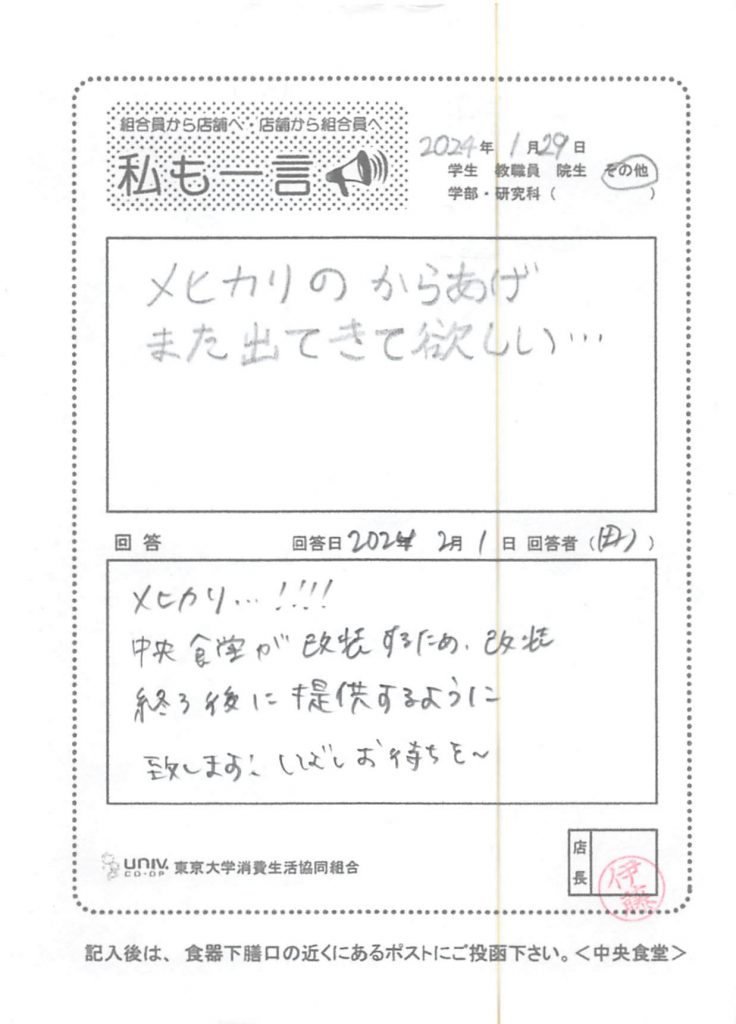 組合員から店舗へ・店舗から組合員へ
私も一言
2024年 1月29日
学生 教職員 院生 その他
学部・研究科（ ）
メヒカリの からあげ
また出てきて欲しい…
回答 回答日 2024年 2月 1日 回答者（ ）
メヒカリ…!!!!
中央食堂が改装するため、改装
終了後に提供するように
致します！しばしお待ちを～
UNIV.
CO-OP
東京大学消費生活協同組合
店長
伊藤
記入後は、食器下膳口の近くにあるポストにご投函下さい。＜中央食堂＞